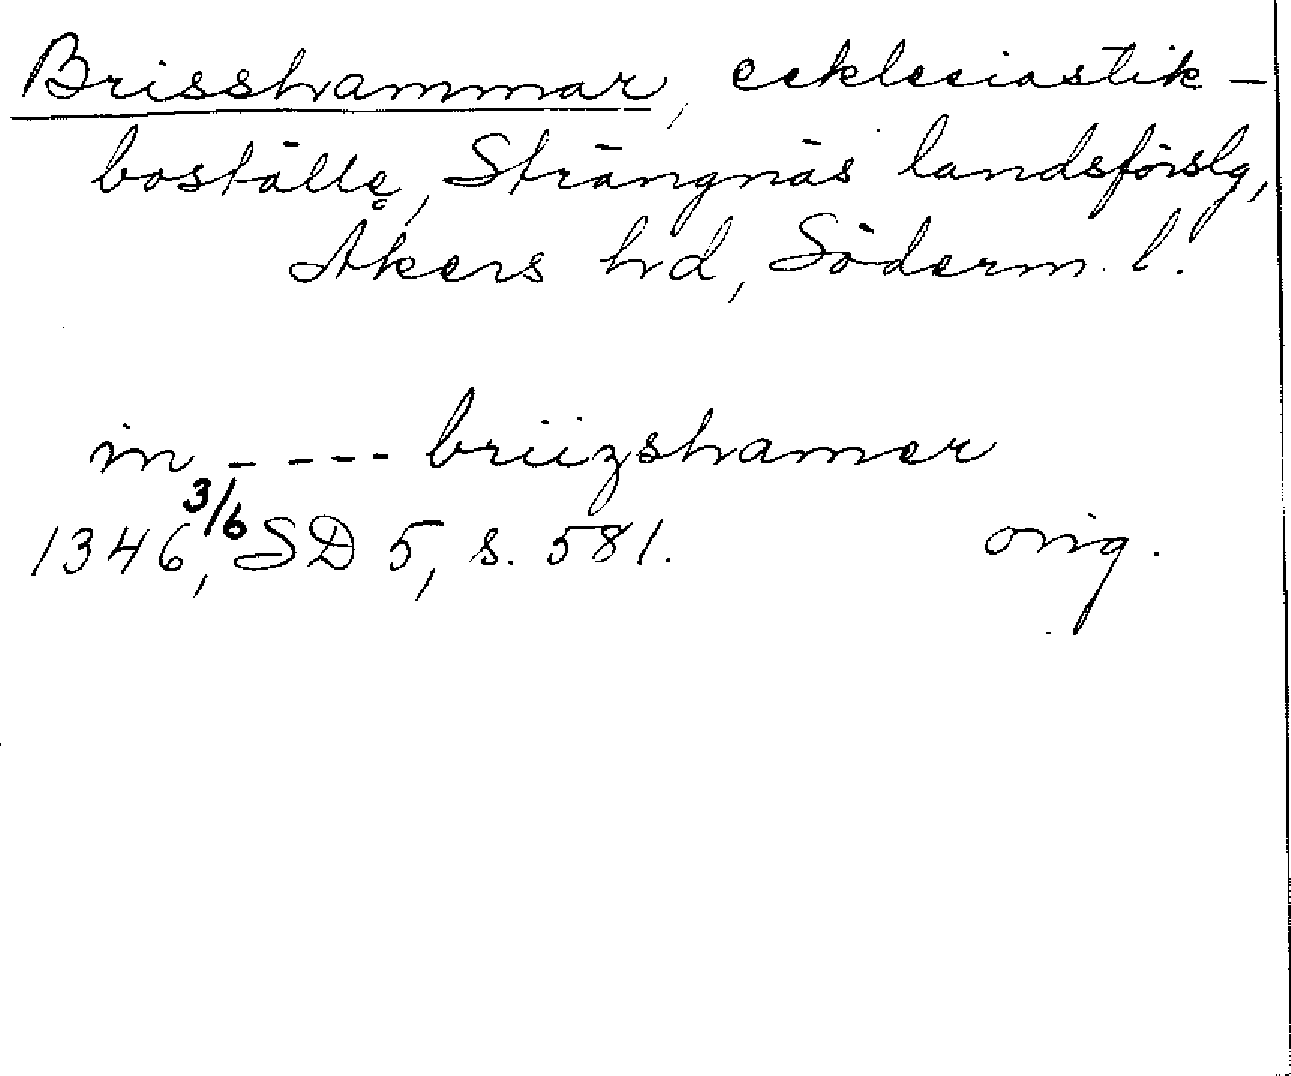 Brisshammar, ecklesiastik-
boställe, Strängnäs landsförslg,
Åkers hd, Söderm. l.
in - - - - briizshamer
1346 3/6, SD 5, s. 581. orig.